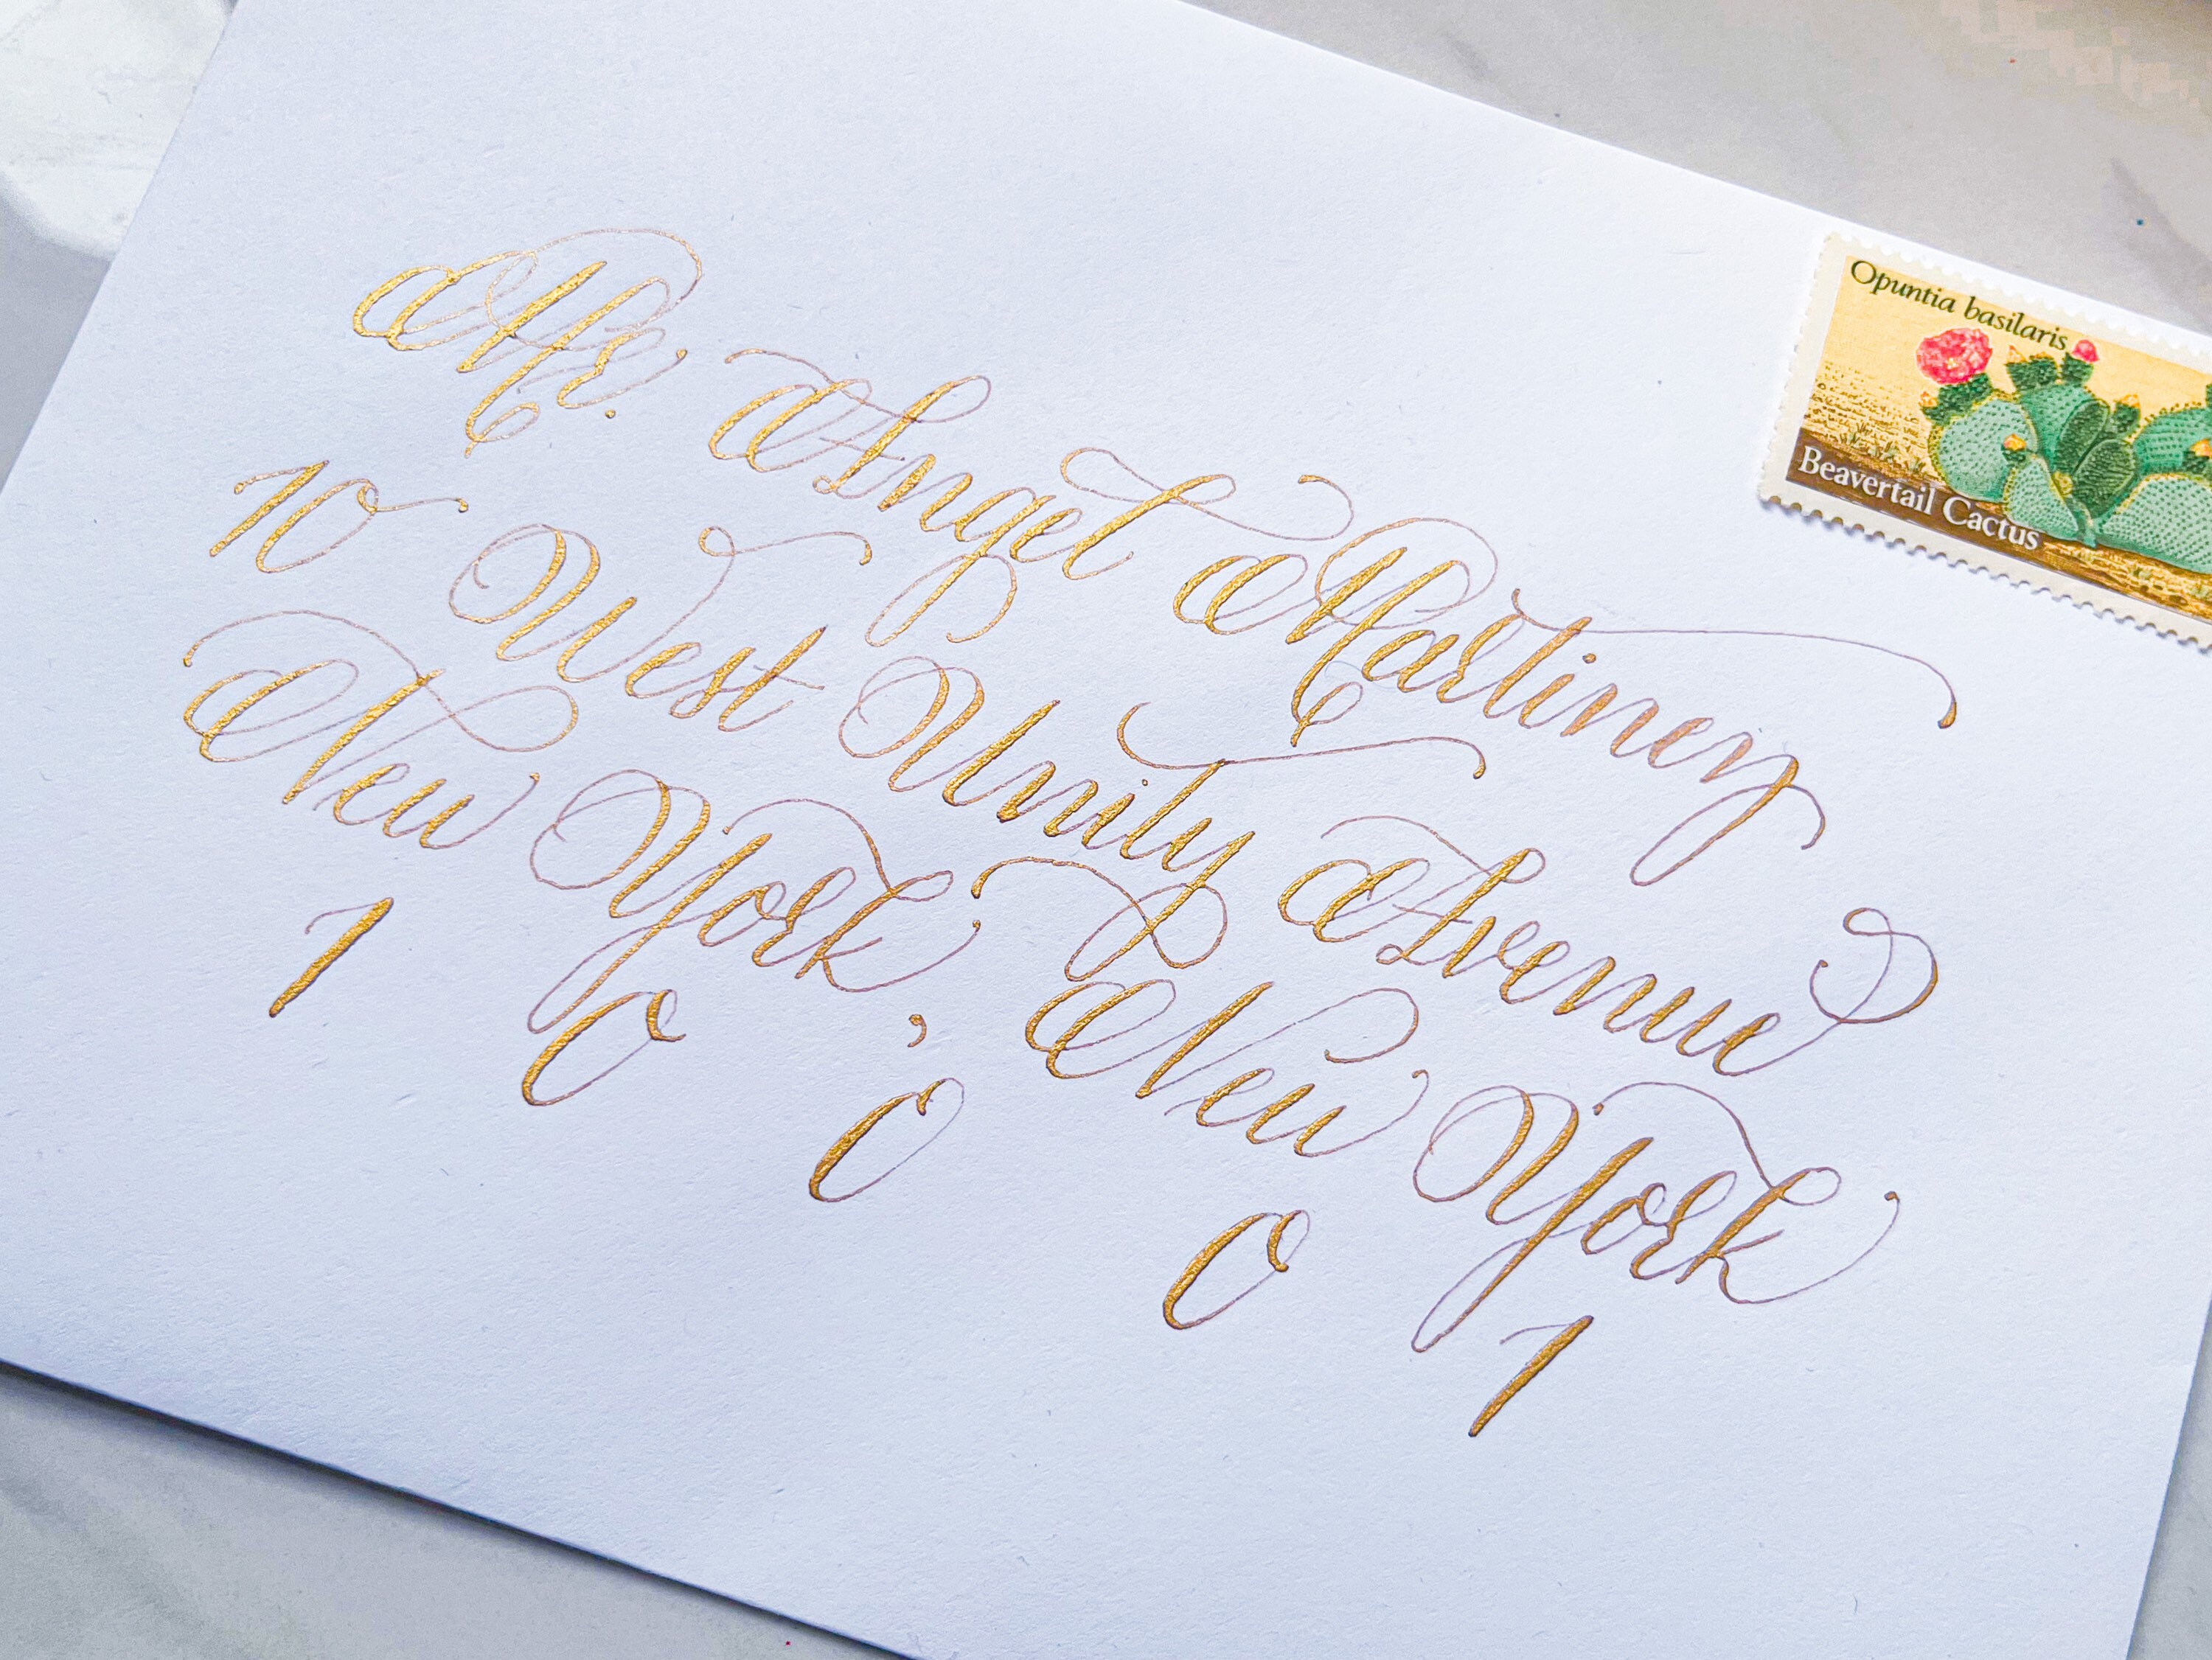 Mr. Angel Martinez
10 West Unity Avenue
New York, New York
10001
Opuntia basilaris
Beavertail Cactus